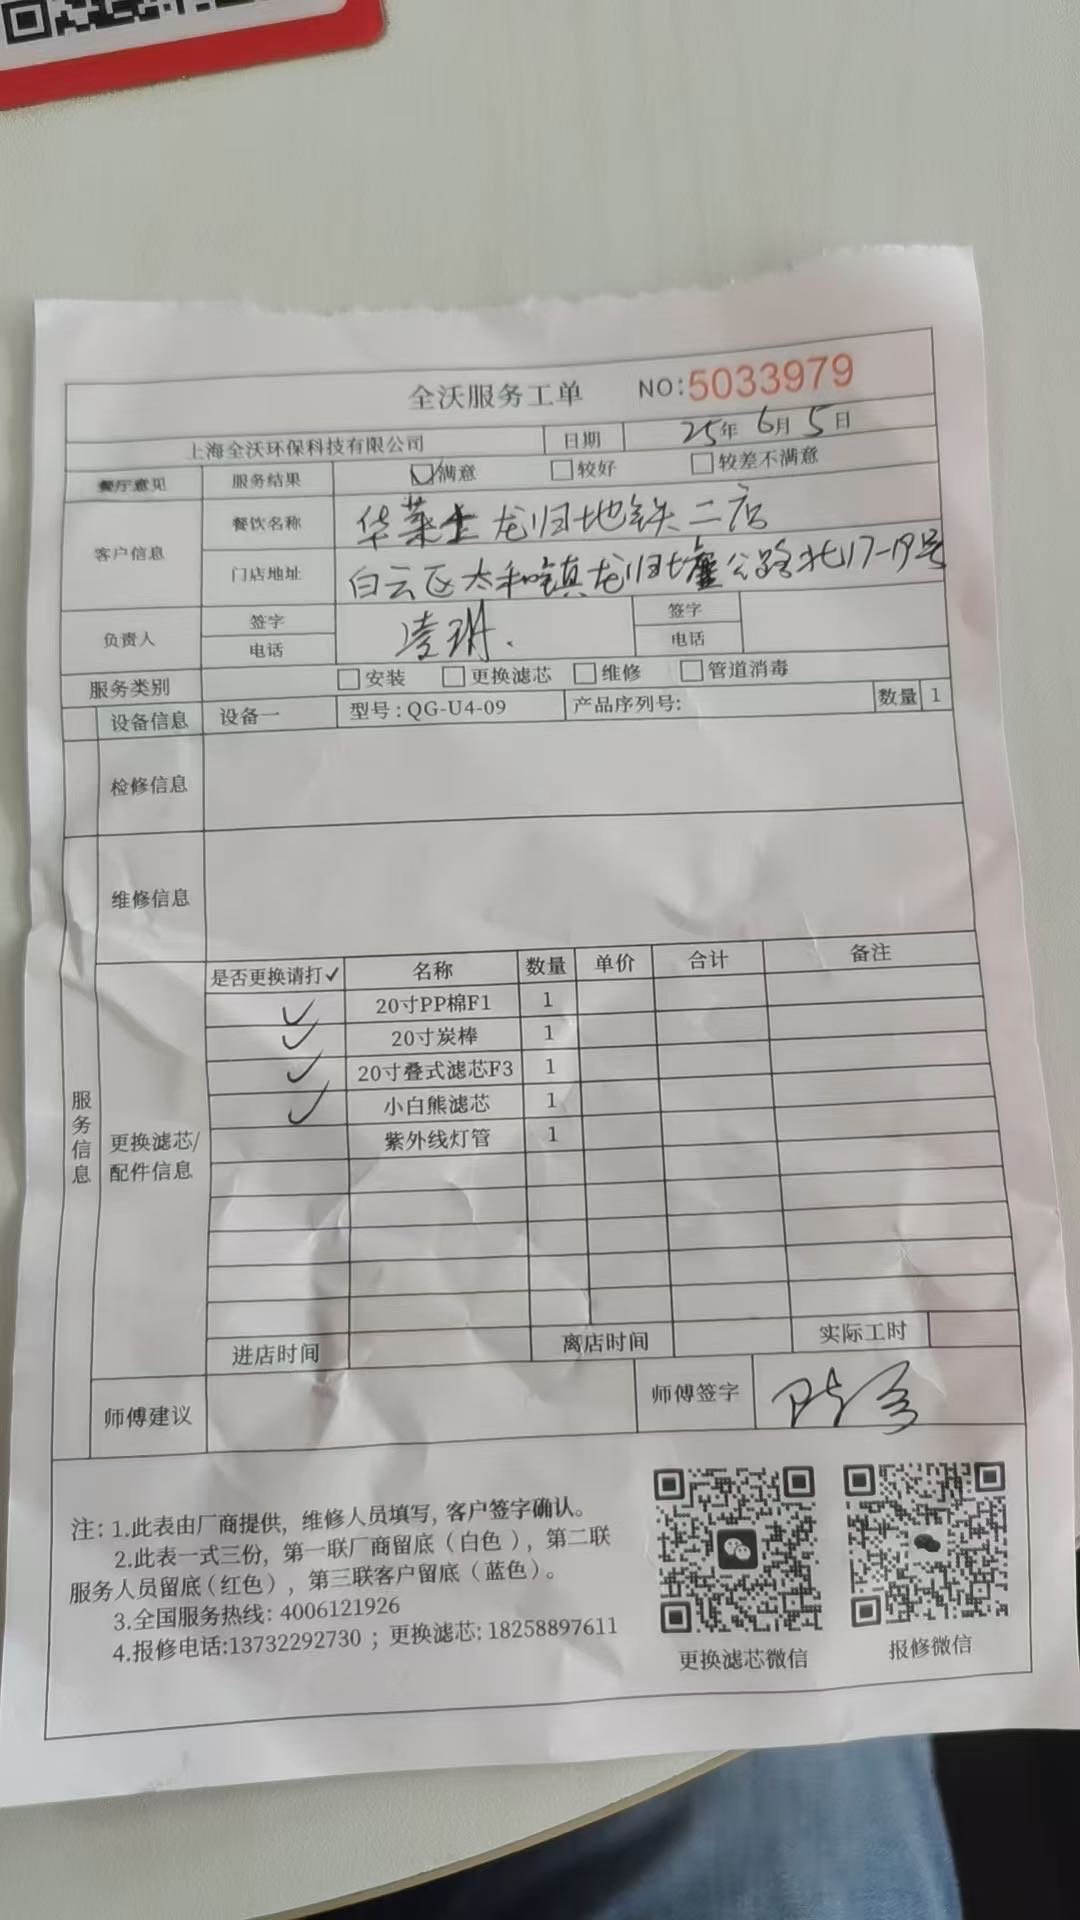 全沃服务工单 NO:5033979
上海全沃环保科技有限公司 日期 25年6月5日
餐厅意见 服务结果 满意 较好 较差不满意
客户信息 餐饮名称 华莱士龙归地铁二店
门店地址 白云区太和镇龙归 公路北17-19号
负责人 签字 签字
电话 电话
服务类别 安装 更换滤芯 维修 管道消毒
设备信息 设备一 型号:QG-U4-09 产品序列号: 数量 1
检修信息
维修信息
服务信息
更换滤芯/
配件信息
是否更换请打✓ 名称 数量 单价 合计 备注
✓ 20寸PP棉F1 1
✓ 20寸炭棒 1
✓ 20寸叠式滤芯F3 1
✓ 小白熊滤芯 1
紫外线灯管 1
进店时间 离店时间 实际工时
师傅建议 师傅签字
注: 1.此表由厂商提供, 维修人员填写, 客户签字确认。
2.此表一式三份, 第一联厂商留底(白色), 第二联
服务人员留底(红色), 第三联客户留底(蓝色)。
3.全国服务热线: 4006121926
4.报修电话:13732292730 ; 更换滤芯: 18258897611
更换滤芯微信 报修微信